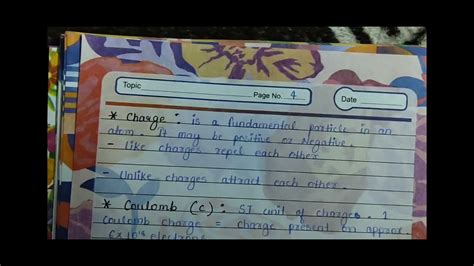 Topic
Page No. 4
Date
* Charge : is a fundamental particle in an
atom. It may be positive or Negative.
- like charges repel each other
- Unlike charges attract each other.
* Coulomb (C) : SI unit of charges. 1
coulomb charge = charge present on approx.
6 x 10¹⁸ electrons